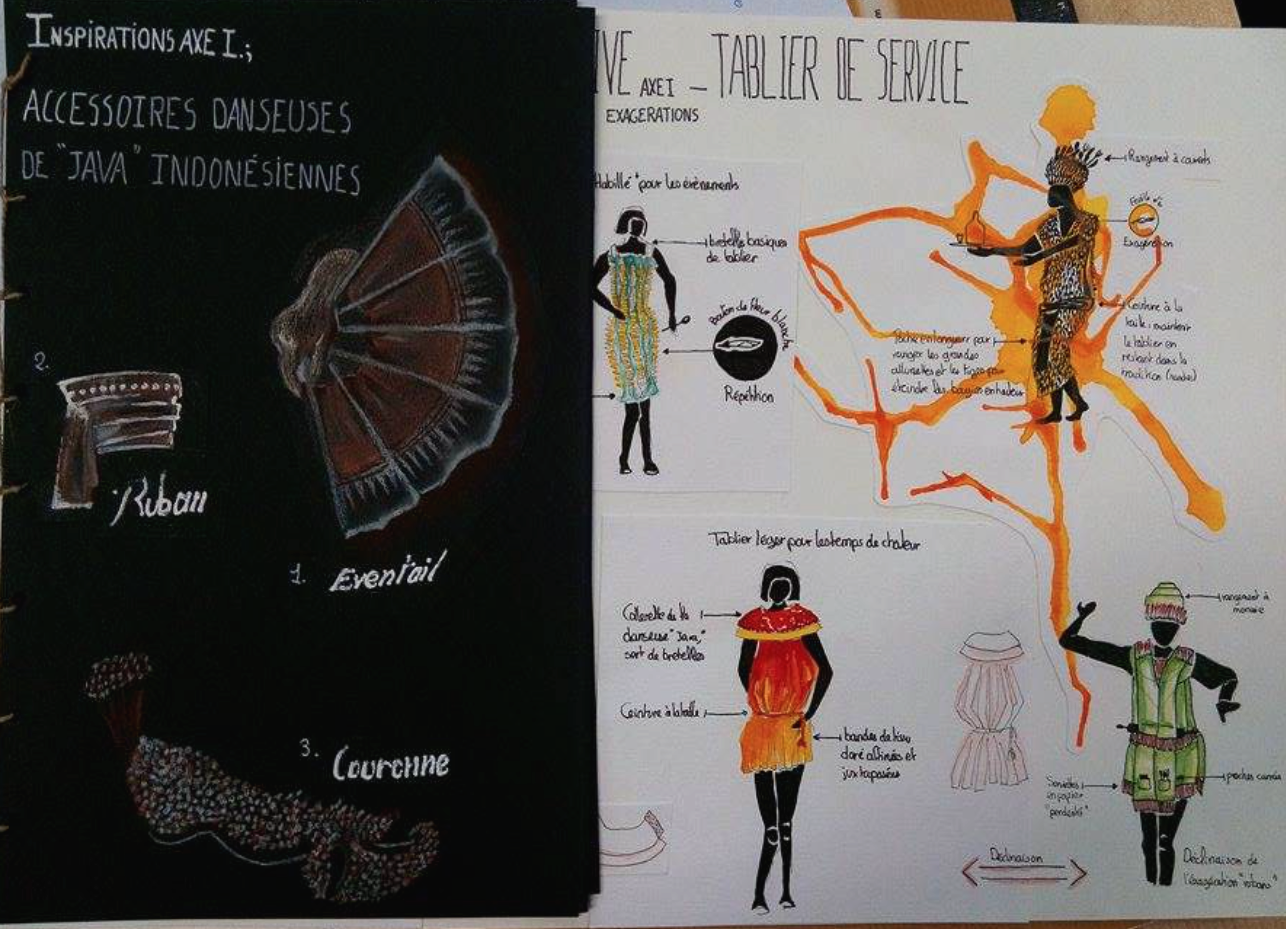 INSPIRATIONS AXE I.;
ACCESSOIRES DANSEUSES
DE "JAVA" INDONÉSIENNES
2.
Ruban
1. Event'ail
3. Couronne
IVE AXE I – TABLIER DE SERVICE
EXAGERATIONS
Habillé" pour les évènements
bretelles basiques
de tablier
Bouton de fleur blanche
Répétition
Rangement à couverts
Exagération
Ceinture à la
taille; maintenir
le tablier en
restant dans la
tradition
Poche en longueur pour
ranger les grandes
allumettes et les tiges pour
éteindre les bougies en hauteur
Tablier léger pour les temps de chaleur
Collerette de la
danseuse "Java,"
sert de bretelles
Ceinture à la taille
bandes de tissu
doré affinées et
juxtaposées
rangement à
monnaie
Serviettes
en papier
poches carrés
Déclinaison
Déclinaison de
l'exagération "rubans"